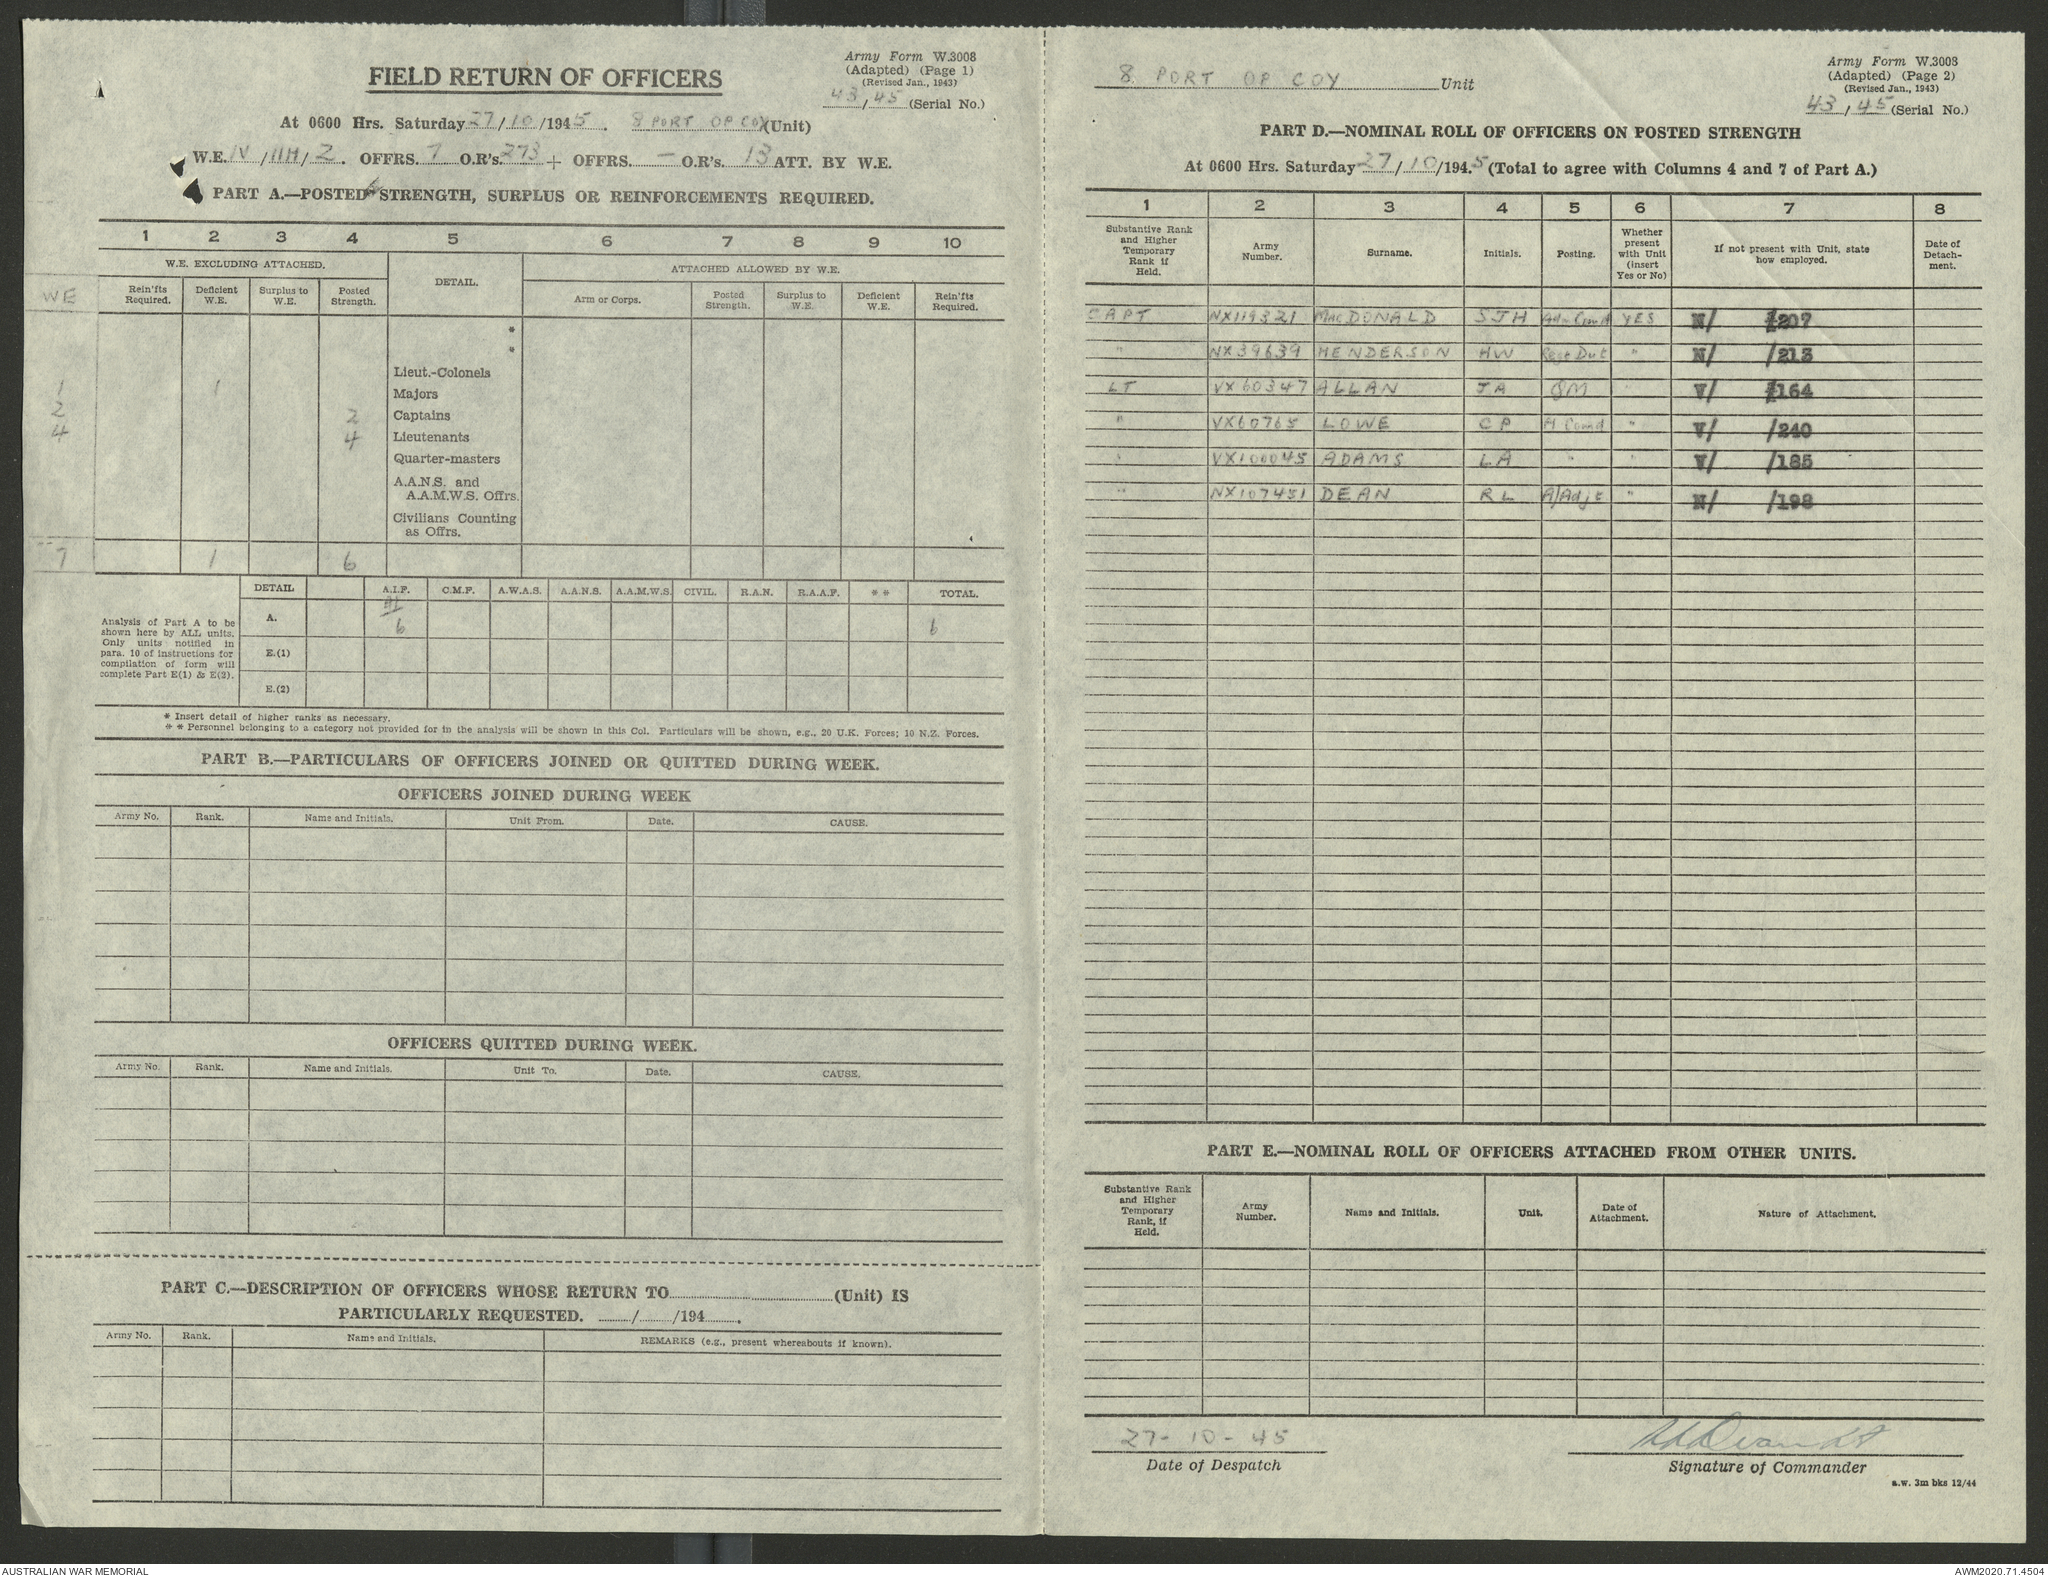 Army Form W.3008
(Adapted) (Page 1)
(Revised Jan., 1943)
43/45 (Serial No.)
FIELD RETURN OF OFFICERS
At 0600 Hrs. Saturday 27/10/1945. 8 PORT OP COY (Unit)
W.E. IV/11H/2. OFFRS. 7 O.R's. 273 + OFFRS. — O.R's. 13 ATT. BY W.E.
PART A.—POSTED STRENGTH, SURPLUS OR REINFORCEMENTS REQUIRED.
1 2 3 4 5 6 7 8 9 10
W.E. EXCLUDING ATTACHED. DETAIL. ATTACHED ALLOWED BY W.E.
WE Rein'fts Required. Deficient W.E. Surplus to W.E. Posted Strength. Arm or Corps. Posted Strength. Surplus to W.E. Deficient W.E. Rein'fts Required.
*
*
Lieut.-Colonels
1 1 Majors
2 2 Captains
4 4 Lieutenants
Quarter-masters
A.A.N.S. and
A.A.M.W.S. Offrs.
Civilians Counting
as Offrs.
7 1 6
DETAIL A.I.F. C.M.F. A.W.A.S. A.A.N.S. A.A.M.W.S. CIVIL. R.A.N. R.A.A.F. ** TOTAL.
Analysis of Part A to be
shown here by ALL units.
Only units notified in
para. 10 of instructions for
compilation of form will
complete Part E(1) & E(2).
A. 6 6
E.(1)
E.(2)
* Insert detail of higher ranks as necessary.
** Personnel belonging to a category not provided for in the analysis will be shown in this Col. Particulars will be shown, e.g., 20 U.K. Forces; 10 N.Z. Forces.
PART B.—PARTICULARS OF OFFICERS JOINED OR QUITTED DURING WEEK.
OFFICERS JOINED DURING WEEK
Army No. Rank. Name and Initials. Unit From. Date. CAUSE.
OFFICERS QUITTED DURING WEEK.
Army No. Rank. Name and Initials. Unit To. Date. CAUSE.
PART C.—DESCRIPTION OF OFFICERS WHOSE RETURN TO (Unit) IS
PARTICULARLY REQUESTED. / /194 .
Army No. Rank. Name and Initials. REMARKS (e.g., present whereabouts if known).
8 PORT OP COY Unit
Army Form W.3008
(Adapted) (Page 2)
(Revised Jan., 1943)
43/45 (Serial No.)
PART D.—NOMINAL ROLL OF OFFICERS ON POSTED STRENGTH
At 0600 Hrs. Saturday 27/10/1945 (Total to agree with Columns 4 and 7 of Part A.)
1 2 3 4 5 6 7 8
Substantive Rank and Higher Temporary Rank if Held. Army Number. Surname. Initials. Posting. Whether present with Unit (insert Yes or No) If not present with Unit, state how employed. Date of Detachment.
CAPT NX119321 MacDONALD SJH Adm Comd YES N/ /207
" NX39639 HENDERSON HW Regt Dut " N/ /213
LT VX60347 ALLAN JA QM " V/ /164
" VX60765 LOWE CP A Comd " V/ /240
" VX100045 ADAMS LA " " V/ /185
" NX107451 DEAN RL A/Adjt " N/ /198
PART E.—NOMINAL ROLL OF OFFICERS ATTACHED FROM OTHER UNITS.
Substantive Rank and Higher Temporary Rank, if Held. Army Number. Name and Initials. Unit. Date of Attachment. Nature of Attachment.
27-10-45
Date of Despatch Signature of Commander
a.w. 3m bks 12/44
AUSTRALIAN WAR MEMORIAL AWM2020.71.4504